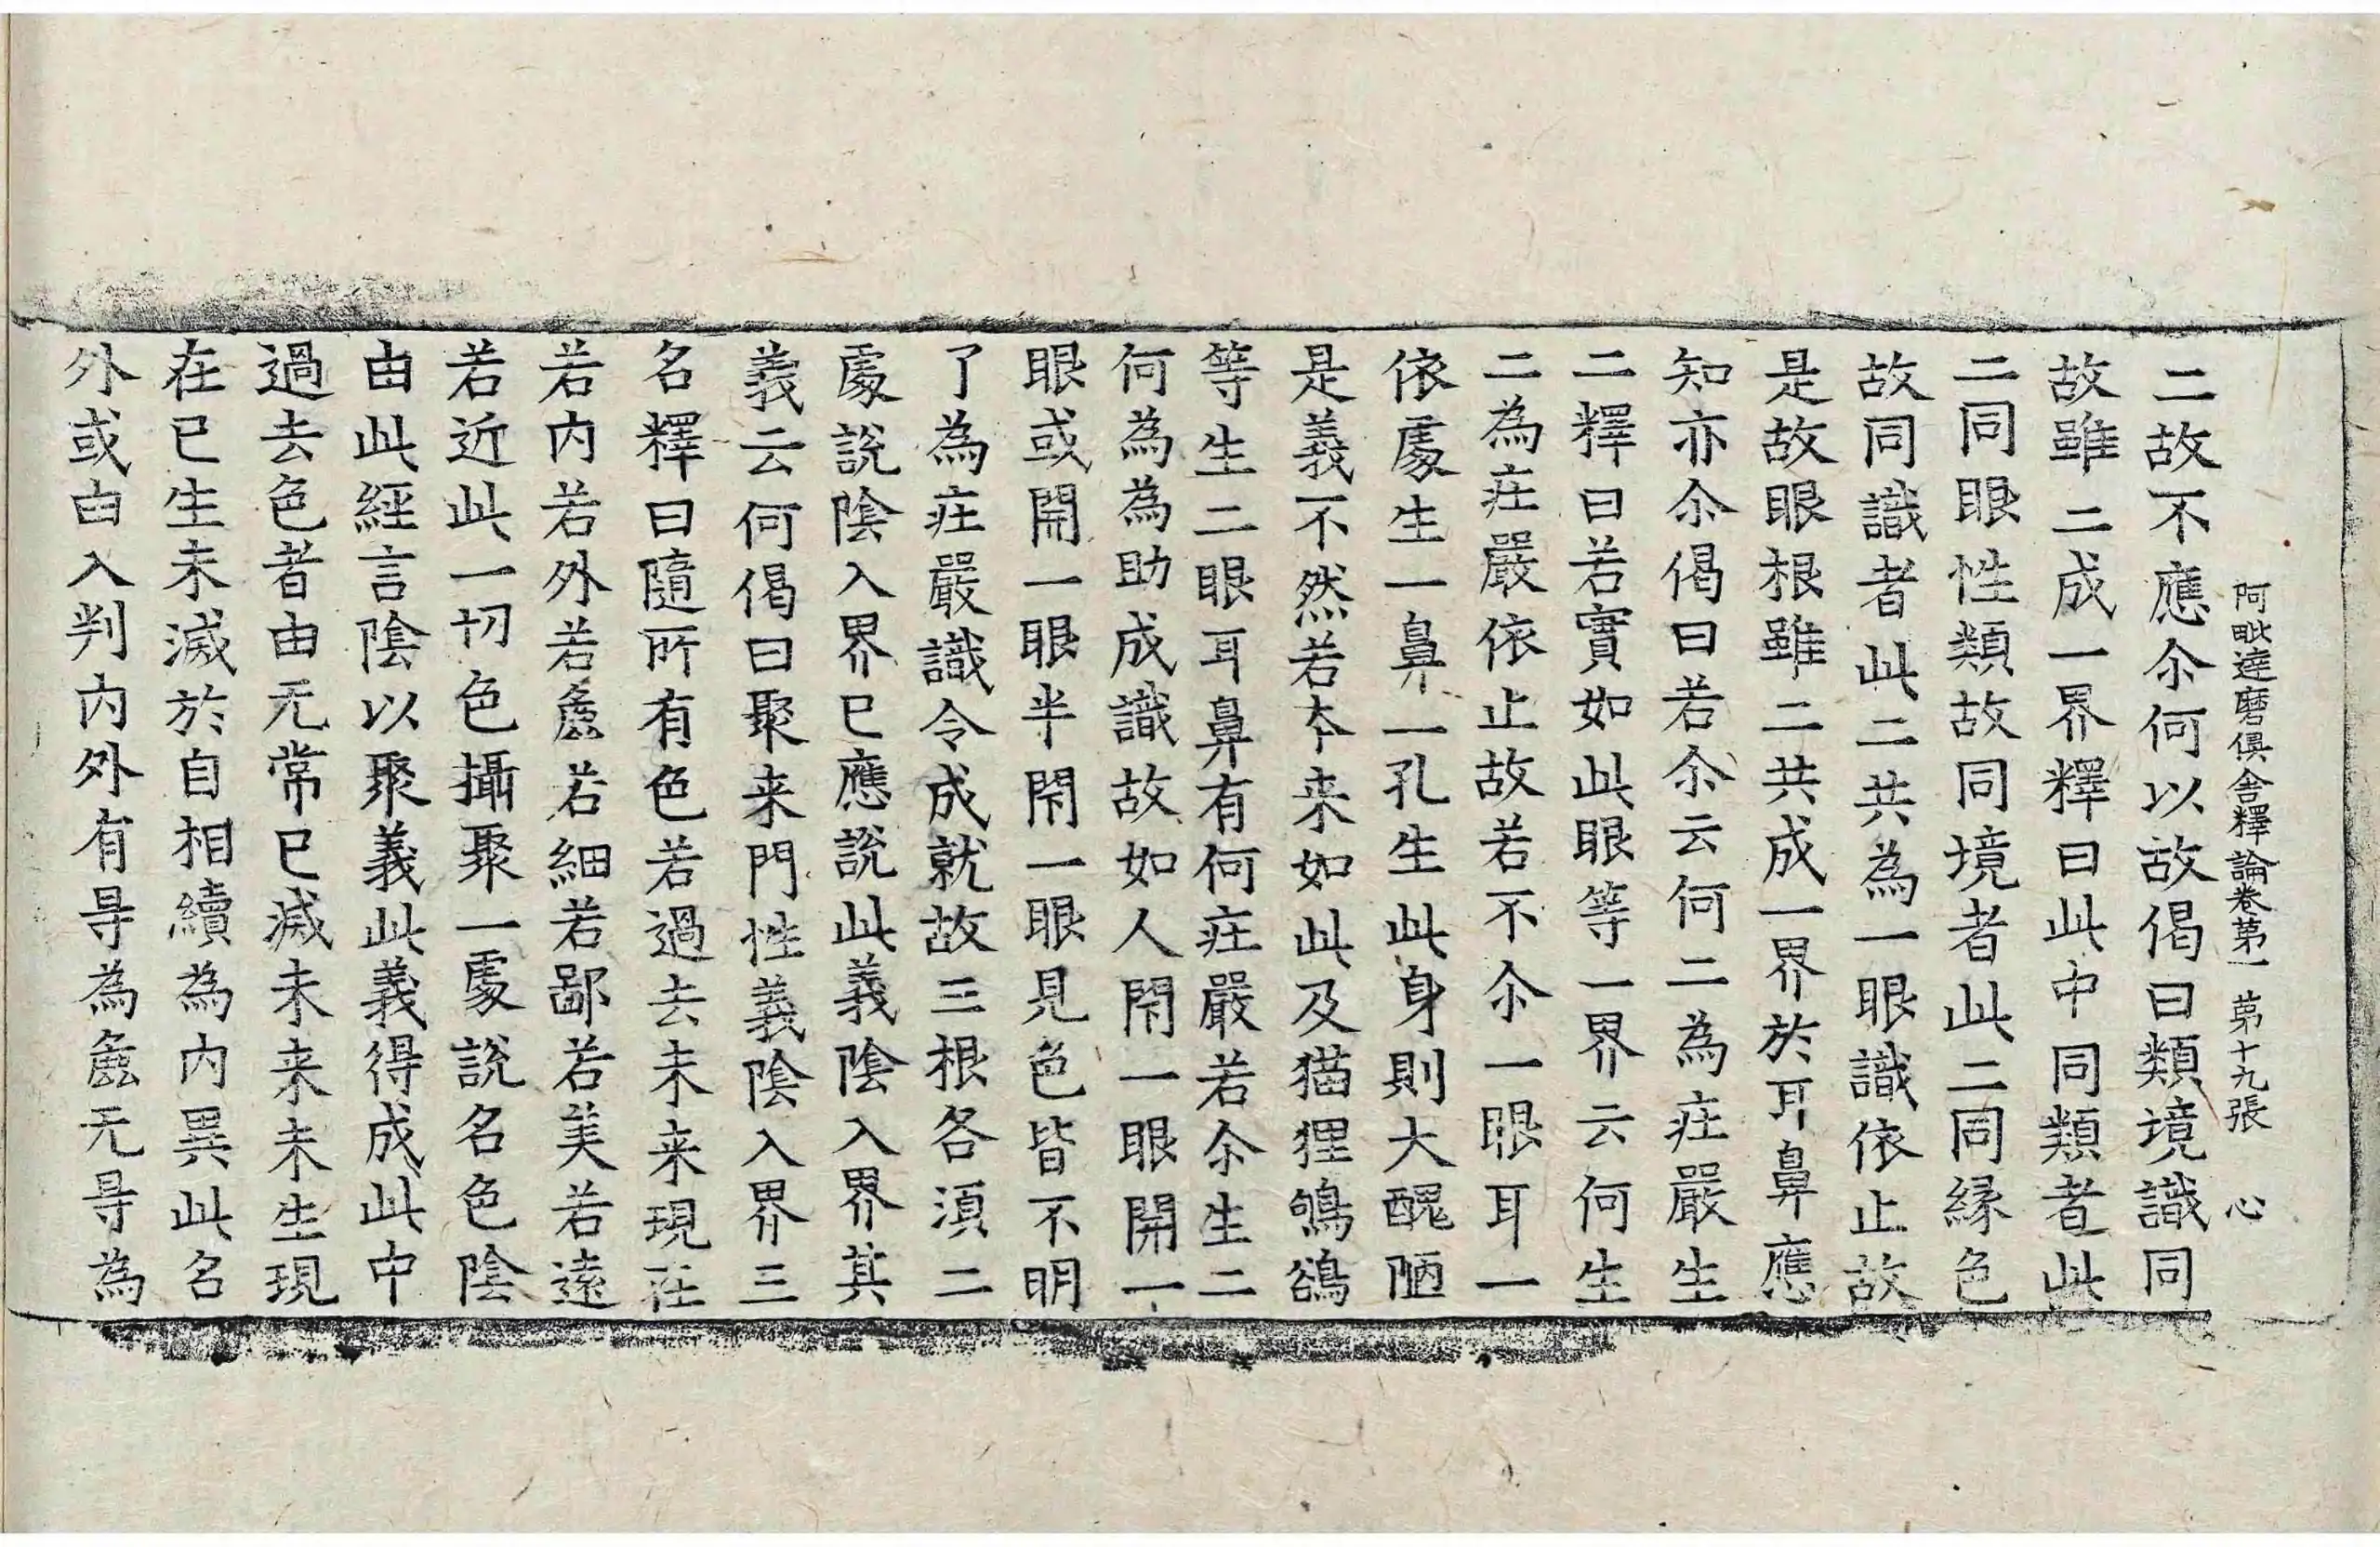 阿毗達磨俱舍釋論卷第一 第十九張 心
二故不應尒何以故偈曰類境識同
故雖二成一界釋曰此中同類者此
二同眼性類故同境者此二同縁色
故同識者此二共為一眼識依止故
是故眼根雖二共成一界於耳鼻應
知亦尒偈曰若尒云何二為莊嚴生
二釋曰若實如此眼等一界云何生
二為莊嚴依止故若不尒一眼耳一
依處生一鼻一孔生此身則大醜陋
是義不然若夲来如此及猫狸鵂鶹
等生二眼耳鼻有何莊嚴若尒生二
何為為助成識故如人閇一眼開一
眼或開一眼半閇一眼見色皆不明
了為莊嚴識令成就故三根各須二
處說陰入界已應說此義陰入界其
義云何偈曰聚来門性義陰入界三
名釋曰隨所有色若過去未来現在
若内若外若麁若細若鄙若美若遠
若近此一切色攝聚一處說名色陰
由此經言陰以聚義此義得成此中
過去色者由无常已滅未来未生現
在已生未滅於自相續為内異此名
外或由入判内外有㝵為麁无㝵為